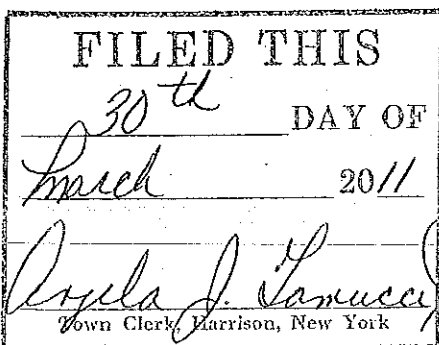 FILED THIS
30th DAY OF
march 2011
Angela J. Iamucci
Town Clerk, Harrison, New York